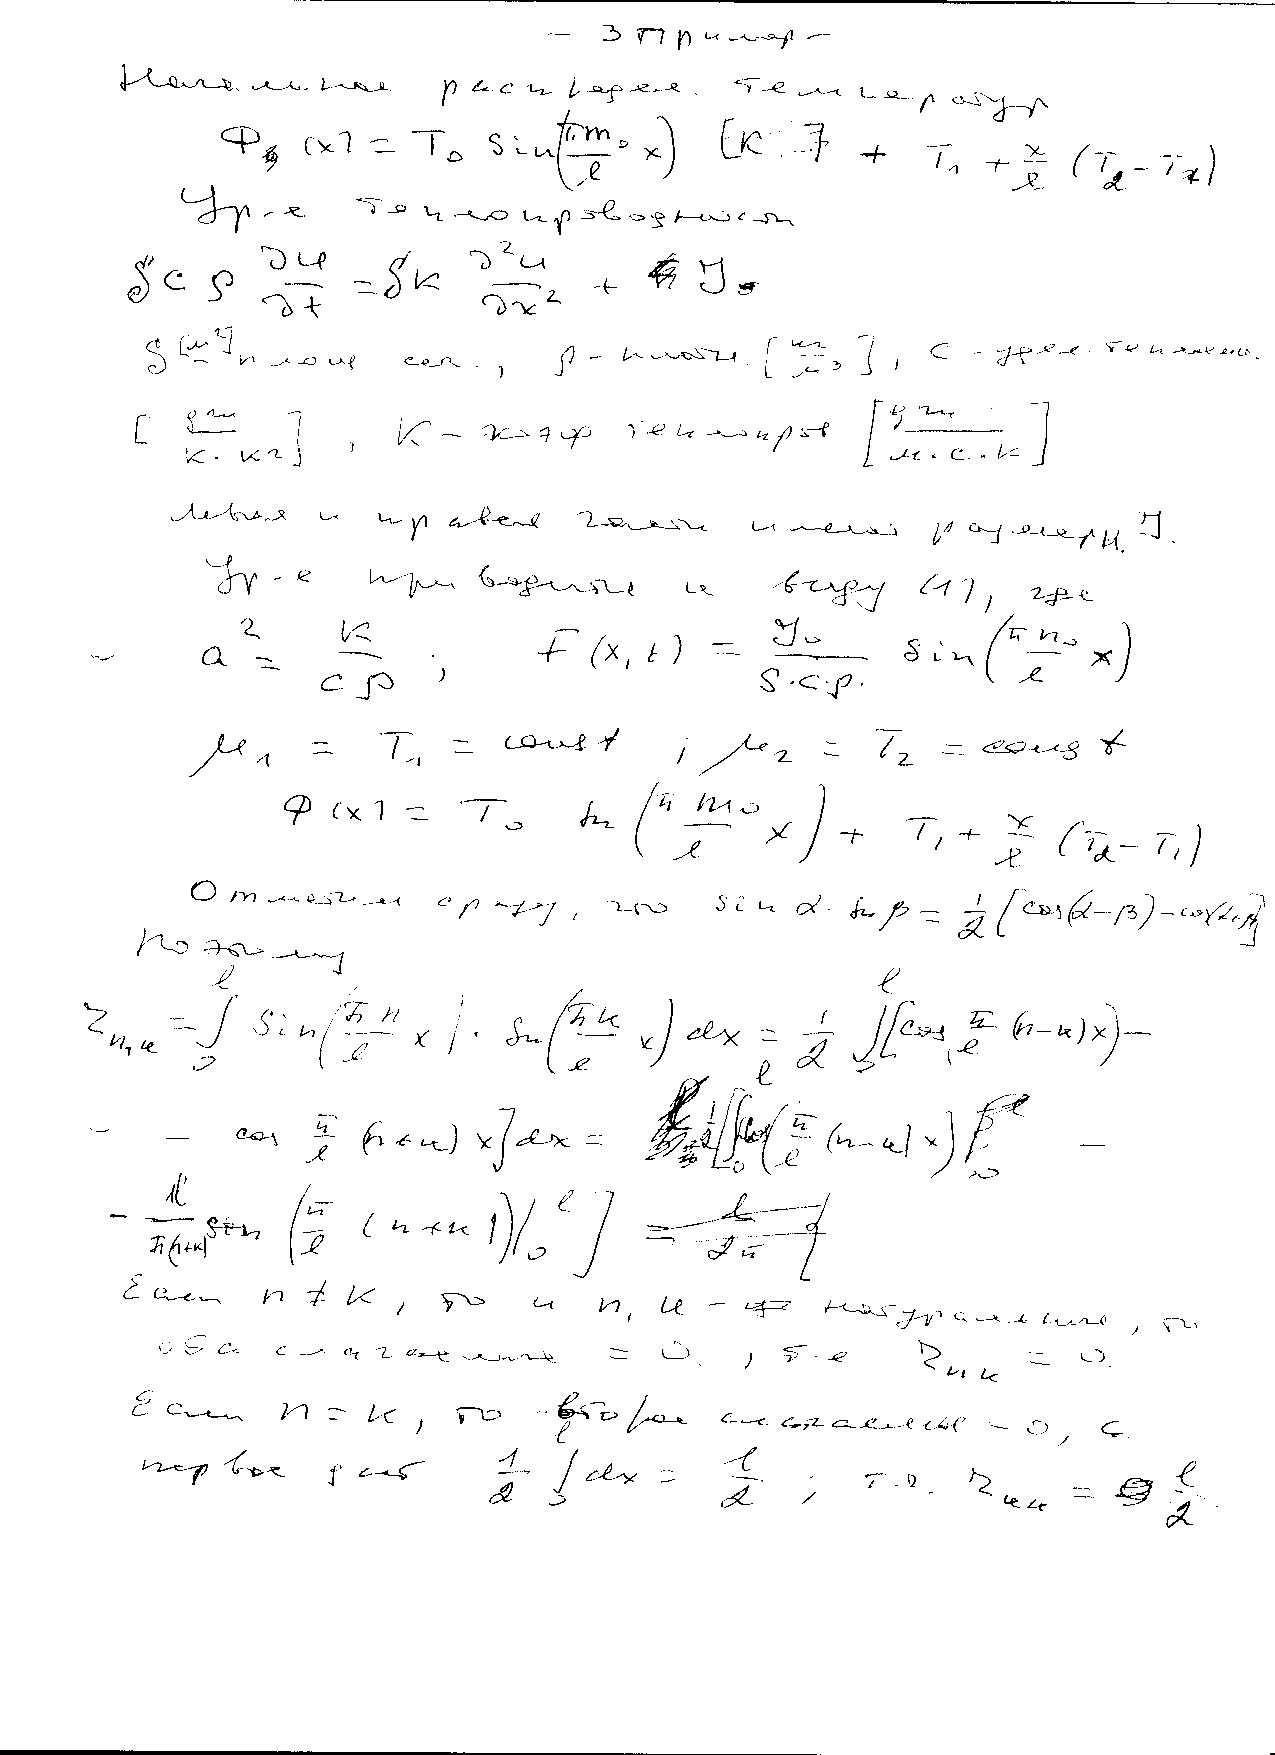 – 3 Пример –
Начальное распредел. температур
Ф (x) = T₀ sin(πm₀/l x) [K°] + T₁ + x/l (T₂ – T₁)
Ур-е теплопроводности
S c ρ ∂u/∂t = S k ∂²u/∂x² + J₀
S [м²] площ. сеч., ρ – плотн. [кг/м³], c – удел. теплоем.
[дж/к·кг], K – коэф теплопров [дж/м·с·к]
левая и правая части имеют размерн.
Ур-е приводим к виду (1), где
a² = k/cρ ; F(x,t) = J₀/S·c·ρ· sin(πn₀/l x)
μ₁ = T₁ = const ; μ₂ = T₂ = const
φ(x) = T₀ sin(πm₀/l x) + T₁ + x/l (T₂ – T₁)
Отметим сразу, что sin α · sin β = 1/2 [cos(α–β) – cos(α+β)]
поэтому
Z n,k = ∫₀ˡ sin(πn/l x) · sin(πk/l x) dx = 1/2 ∫₀ˡ [cos π/l (n–k)x) –
– cos π/l (n+k) x] dx = 1/2 [∫₀ˡ cos(π/l (n–k) x) –
– l/π(n+k) sin (π/l (n+k))|₀ˡ ] =
Если n ≠ k, то и n, k – натуральные, то
оба слагаемые = 0, т.е Z nk = 0.
Если n = k, то второе слагаемое = 0, а
первое даст 1/2 ∫₀ˡ dx = l/2 ; т.е. Z kk = l/2.